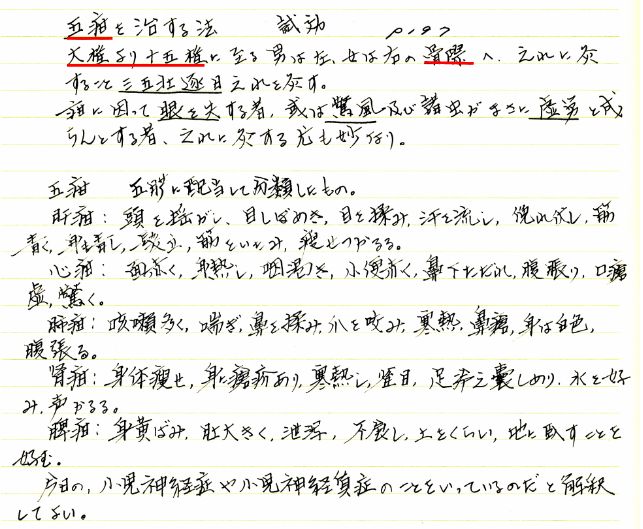 五疳を治する法 試効 P197
大椎より十五椎に至る男は左、女は右の骨際へ、之れに灸
すること三五壮逐日之れを灸す。
疳に因って眼を失する者、或は驚風及び諸虫がまさに虚労と成
らんとする者、之れに灸する尤も妙なり。
五疳 五臓に配当して分類したもの。
肝疳：頭を揺がし、目しばめき、目を揉み、汗を流し、俛れ伏し、筋
青く、身青し、筋をいたみ、痩せつかるる。
心疳：面赤く、身熱し、咽渇き、小便赤く、鼻下ただれ、腹張り、口瘡
虚、驚く。
肺疳：咳嗽多く、喘ぎ、鼻を揉み、爪を咬み、寒熱、鼻瘡、身は白色、
腹張る。
腎疳：身体痩せ、身に瘡疥あり、寒熱し、足冷え嚢しめり、水を好
み、声かるる。
脾疳：身黄ばみ、肚大きく、泄瀉、不食し、土をくらい、地に臥すことを
好む。
今日の、小児神経症や小児神経質症のことをいっているのだと解釈
してよい。